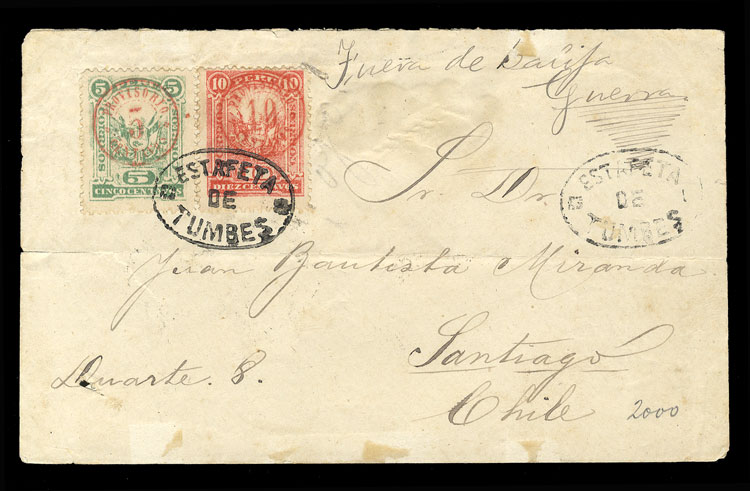 5 5
5
CINCO CENTAVOS
10 PERU 10
10
DIEZ CENTAVOS
Fuera de tarifa
Guerra
ESTAFETA
DE
TUMBES
ESTAFETA
DE
TUMBES
Sr. Dr.
Juan Bautista Miranda
Santiago
Duarte. 8.
Chile
2000